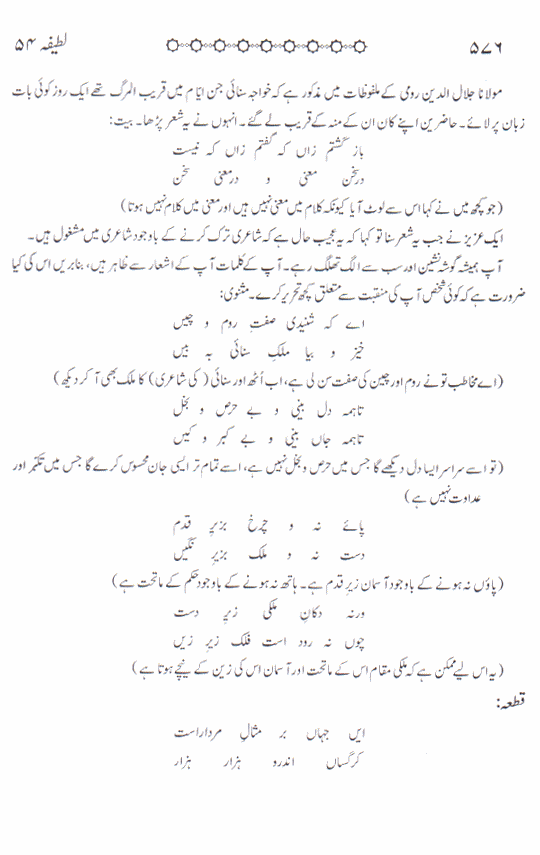 ۵۷۶ لطیفہ ۵۴
مولانا جلال الدین رومی کے ملفوظات میں مذکور ہے کہ خواجہ سنائی جن ایّام میں قریب المرگ تھے ایک روز کوئی بات
زبان پر لائے۔ حاضرین اپنے کان ان کے منہ کے قریب لے گئے۔ انہوں نے یہ شعر پڑھا۔ بیت:
باز گشتم زاں کہ گفتم زاں کہ نیست
درسخن معنی و درمعنی سخن
(جو کچھ میں نے کہا اس سے لوٹ آیا کیونکہ کلام میں معنی نہیں ہیں اور معنی میں کلام نہیں ہوتا)
ایک عزیز نے جب یہ شعر سنا تو کہا کہ یہ عجیب حال ہے کہ شاعری ترک کرنے کے باوجود شاعری میں مشغول ہیں۔
آپ ہمیشہ گوشہ نشین اور سب سے الگ تھلگ رہے۔ آپ کے کلمات آپ کے اشعار سے ظاہر ہیں، بنابریں اس کی کیا
ضرورت ہے کہ کوئی شخص آپ کی منقبت سے متعلق کچھ تحریر کرے۔ مثنوی:
اے کہ شنیدی صفتِ روم و چیں
خیز و بیا ملکِ سنائی بہ بیں
(اے مخاطب تو نے روم اور چین کی صفت سن لی ہے، اب اُٹھ اور سنائی (کی شاعری) کا ملک بھی آ کر دیکھ)
تاہمہ دل بینی و بے حرص و بخل
تاہمہ جاں بینی و بے کبر و کیں
(تو اسے سراسر ایسا دل دیکھے گا جس میں حرص و بخل نہیں ہے، اسے تمام تر ایسی جان محسوس کرے گا جس میں تکبّر اور
عداوت نہیں ہے)
پائے نہ و چرخ بزیرِ قدم
دست نہ و ملک بزیرِ نگیں
(پاؤں نہ ہونے کے باوجود آسمان زیرِ قدم ہے۔ ہاتھ نہ ہونے کے باوجود حکم کے ماتحت ہے)
ورنہ دکانِ ملکی زیرِ دست
چوں نہ رود است فلک زیرِ زیں
(یہ اس لیے ممکن ہے کہ ملکی مقام اس کے ماتحت اور آسمان اس کی زین کے نیچے ہوتا ہے)
قطعہ:
ایں جہاں بر مثالِ مرداراست
کرگساں اندرو ہزار ہزار